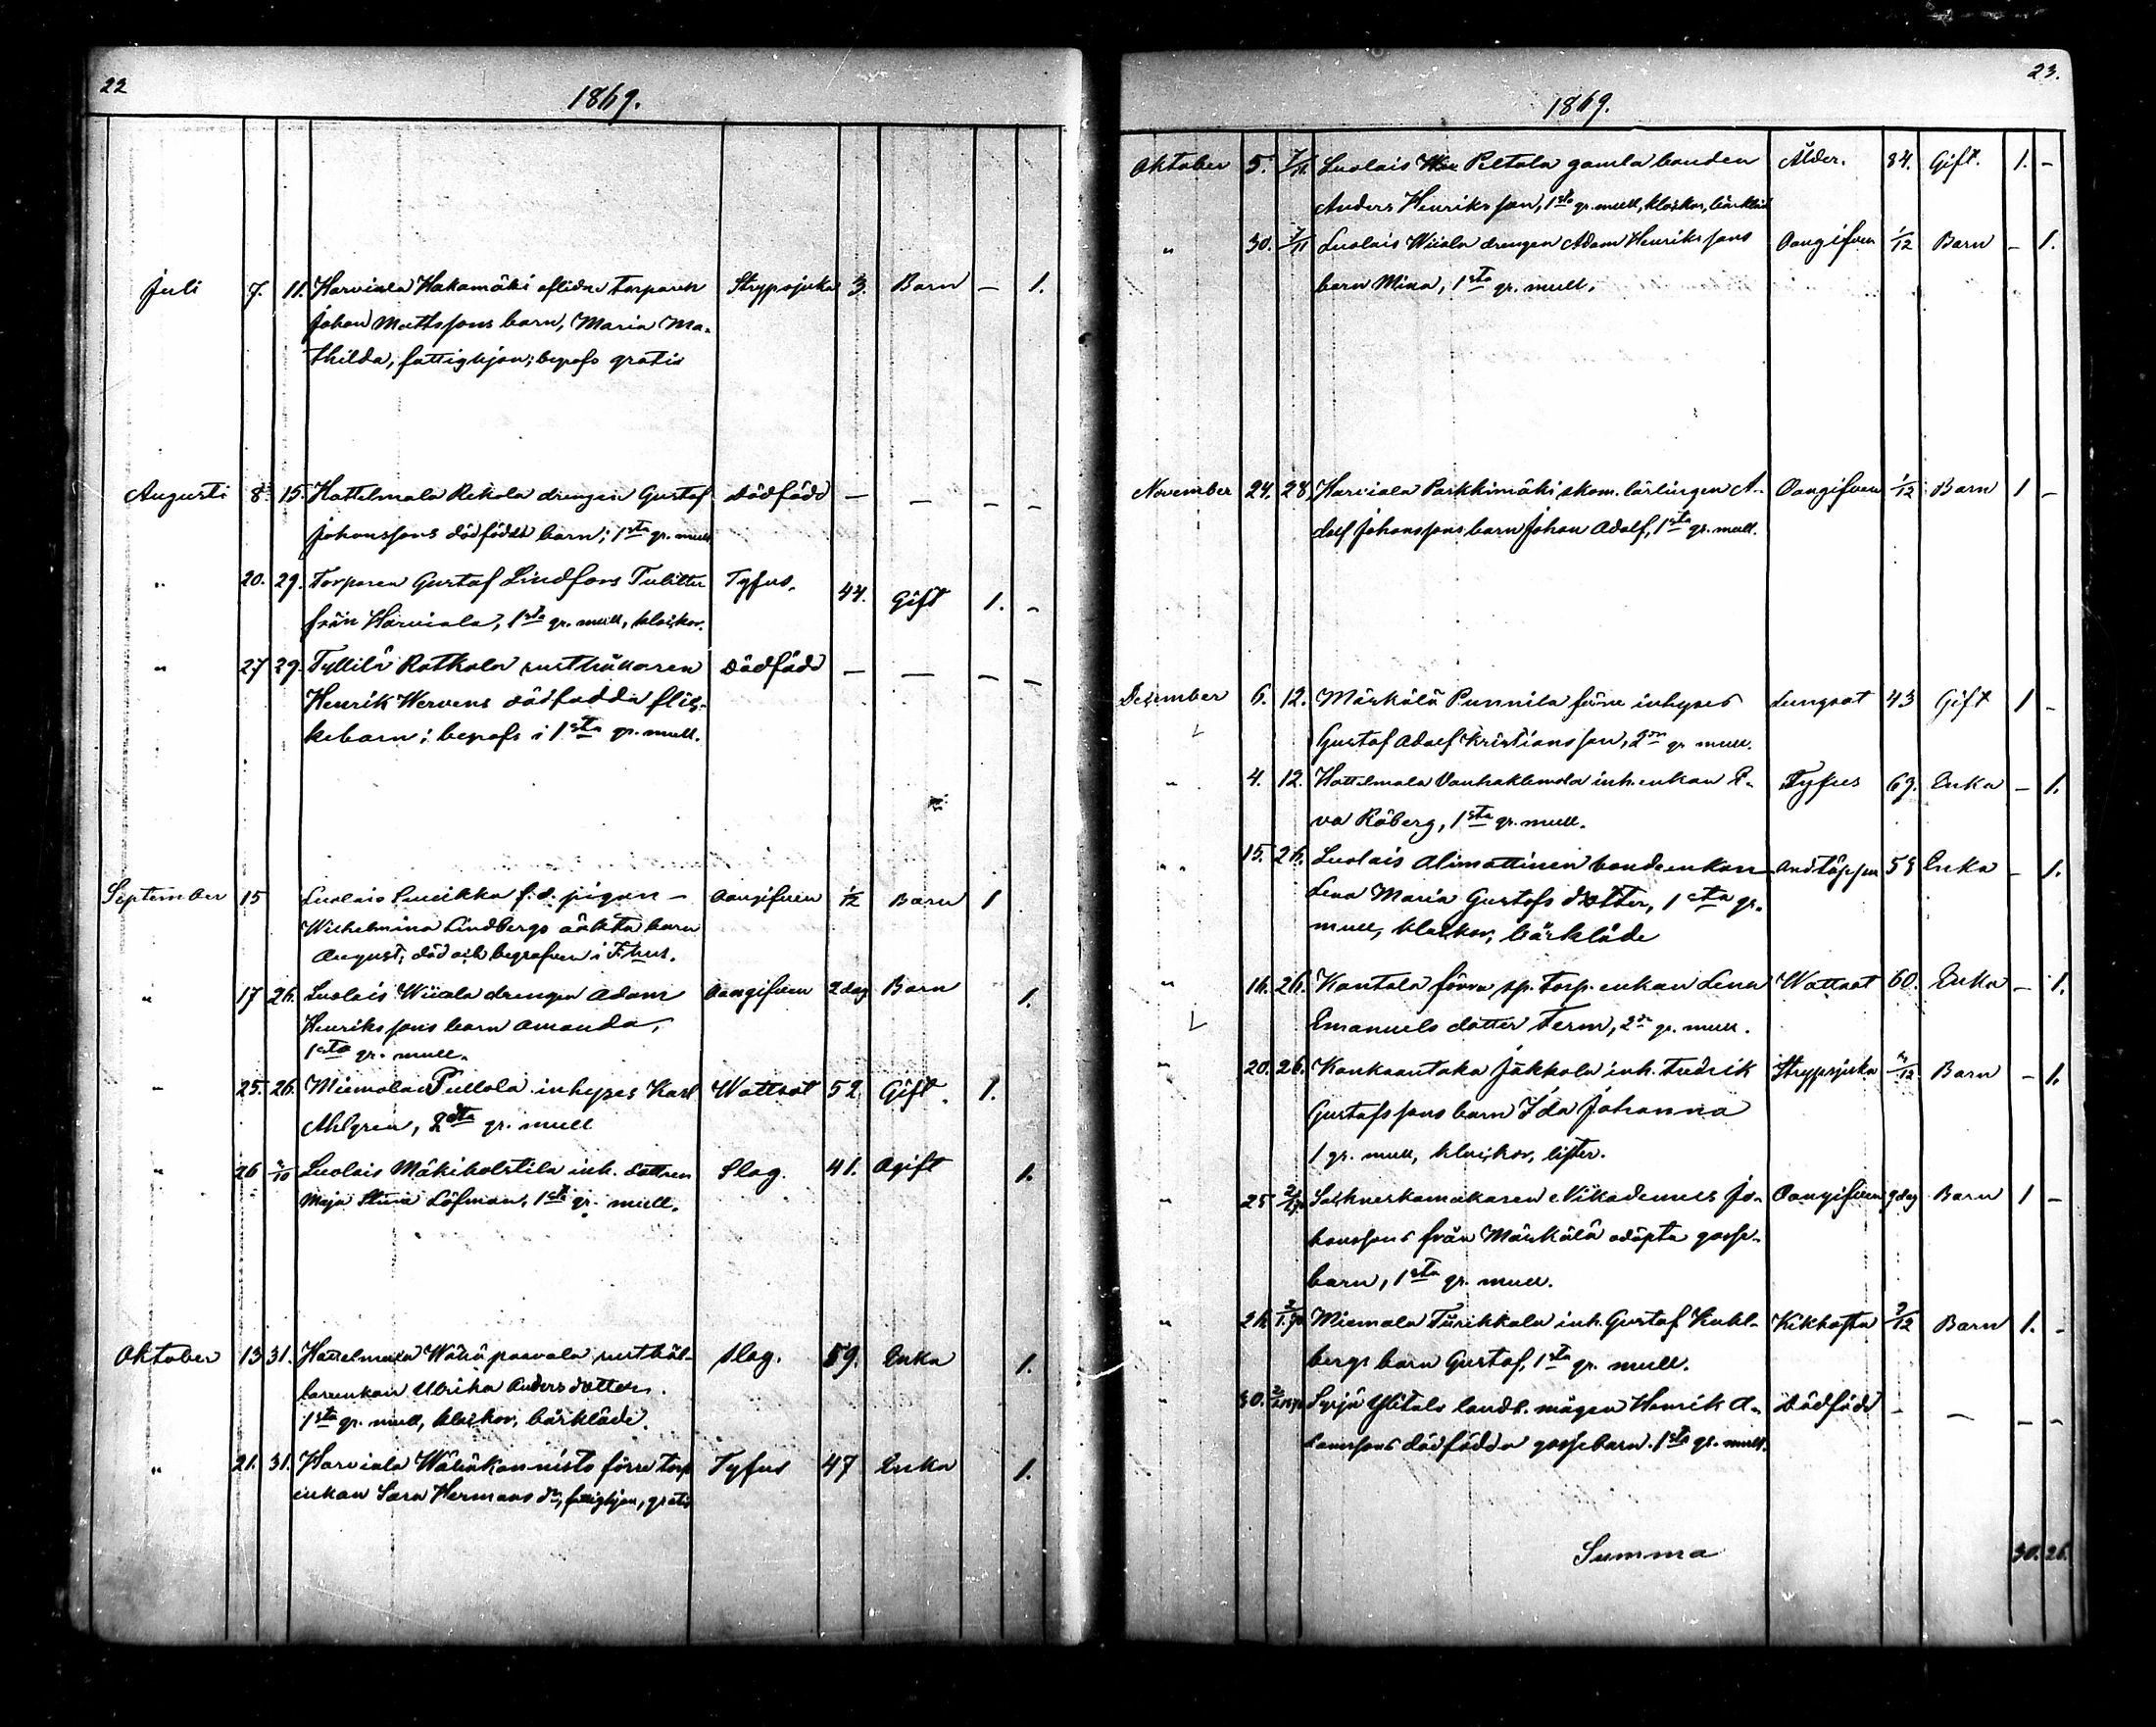 22
1869.
Juli 7. 11. Harviala Hakamäki aflidne torparen Strypsjuka 3. Barn – 1.
Johan Mattssons barn, Maria Ma-
thilda, fattighjon; begrafs gratis
Augusti 8 15. Hattelmala Rekola drengen Gustaf Dödfödd – – – –
Johanssons dödfödda barn; 1sta gr. mull
" 20. 29. Torparen Gustaf Lindfors Tyfus. 44. Gift 1. –
från Harviala, 1sta gr. mull, klockor.
" 27 29. Tyllilä Ratkala rusthållaren Dödfödd – – – –
Henrik Wervens dödfödda flic-
kebarn; begrafs i 1sta gr. mull.
September 15 Luolais f. d. pigan – Oangifven 1/12 Barn 1
Wilhelmina Lindbergs oäkta barn
August, död och begrafven i F:hus.
" 17 26. Luolais Wiiala drengen Adam Oangifven 2 dag Barn 1.
Henrikssons barn Amanda,
1sta gr. mull.
" 25. 26. Miemala Pullola inhyses Karl Wattsot 52 Gift. 1.
Ahlgren, 2dra gr. mull
" 26 3/10 Luolais Mäkiholstila inh. dottren Slag. 41. Ogift 1.
Maja Stina Löfman, 1sta gr. mull.
Oktober 13 31. Hattelmala Wähä paavola rusthål- Slag. 59. Enka 1.
larenkan Ulrika Anders dotter.
1sta gr. mull, klockor, bårkläde.
" 21. 31. Harviala Wähäkannisto förre torp Tyfus 47 Enka 1.
enkan Sara Hermans dr, fattighjon, gratis
23.
1869.
Oktober 5. 7/11 Luolais Peltola gamla bonden Ålder. 84. Gift. 1. –
Anders Henriksson, 1sta gr. mull, klockor, bårkläde
" 30. 7/11 Luolais Wiiala drengen Adam Henrikssons Oangifven 1/12 Barn – 1.
barn Mina, 1sta gr. mull.
November 24. 28 Harviala Parkkimäki skom. lärlingen A- Oangifven 1/12 Barn 1 –
dolf Johanssons barn Johan Adolf, 1sta gr. mull.
December 6. 12. Mäskälä Punnila förre inhyses Lungsot 43 Gift 1 –
Gustaf Adolf Kristiansson, 2dra gr mull.
" 4. 12. Hattelmala Vanhaklemola inh. enkan E- Tyfus 69. Enka – 1.
va Råberg, 1sta gr. mull.
" 15. 26. Luolais Alimattinen bondeenkan Andtäppa 58 Enka – 1.
Lena Maria Gustafs dotter, 1sta gr.
mull, klockor, bårkläde
" 16. 26. Kantola förra sp. torp. enkan Lena Wattsot 60. Enka – 1.
Emanuels dotter Term, 2dra gr. mull.
" 20. 26. Kankaantaka Jakkola inh. Fredrik Strypsjuka Barn – 1.
Gustafssons barn Ida Johanna
1 gr. mull, klockor, lister.
" 25 Sochneskomakaren Nikodemus Jo- Oangifven 9 dag Barn 1 –
hanssons från Mäskälä odöpta gosse-
barn, 1sta gr. mull.
" 26 Miemala Tūrikkala inh. Gustaf Kuhl- Kikhosta 7/12 Barn 1. –
bergs barn Gustaf, 1sta gr. mull.
" 30. Syrjä Ylitalo landb. mågen Henrik A- Dödfödd – – – –
damssons dödfödda gossebarn. 1sta gr. mull.
Summa 30. 26.